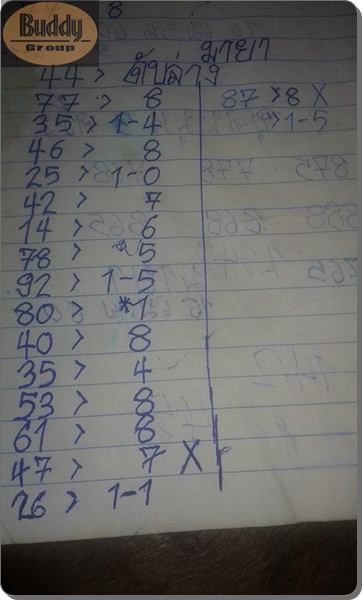 Buddy
Group
8
มายา
44 > ดับล่าง
77 > 8 87 > 8 X
35 > 1-4 > 1-5
46 > 8
25 > 1-0
42 > 7
14 > 6
78 > 5
92 > 1-5
80 > *1
40 > 8
35 > 4
53 > 8
61 > 8
47 > 7 X
26 > 1-1